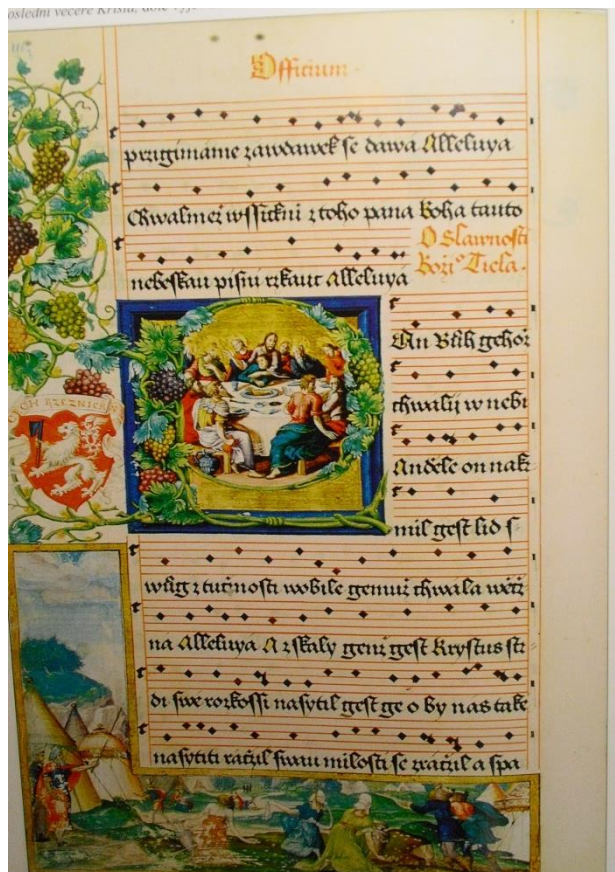 poslední večeře Krista, dole
Officium
przigimáme zawdawek se dawá Alleluya
Chwalmež wssickni z toho pana Boha tauto
O Slawnosti
nebeskau pisni rzkauc Alleluya
Božiº Tiela.
An Buh gehož
chwalij w nebi
Andele on nak
mil gest lid s
wug z tučnosti wobile gemuž chwala wěč
na Alleluya A z skaly genž gest Krystus str
di swe rozkossi nasytil gest ge o by nas take
nasytiti ráčil swau milosti se zráčil a spa